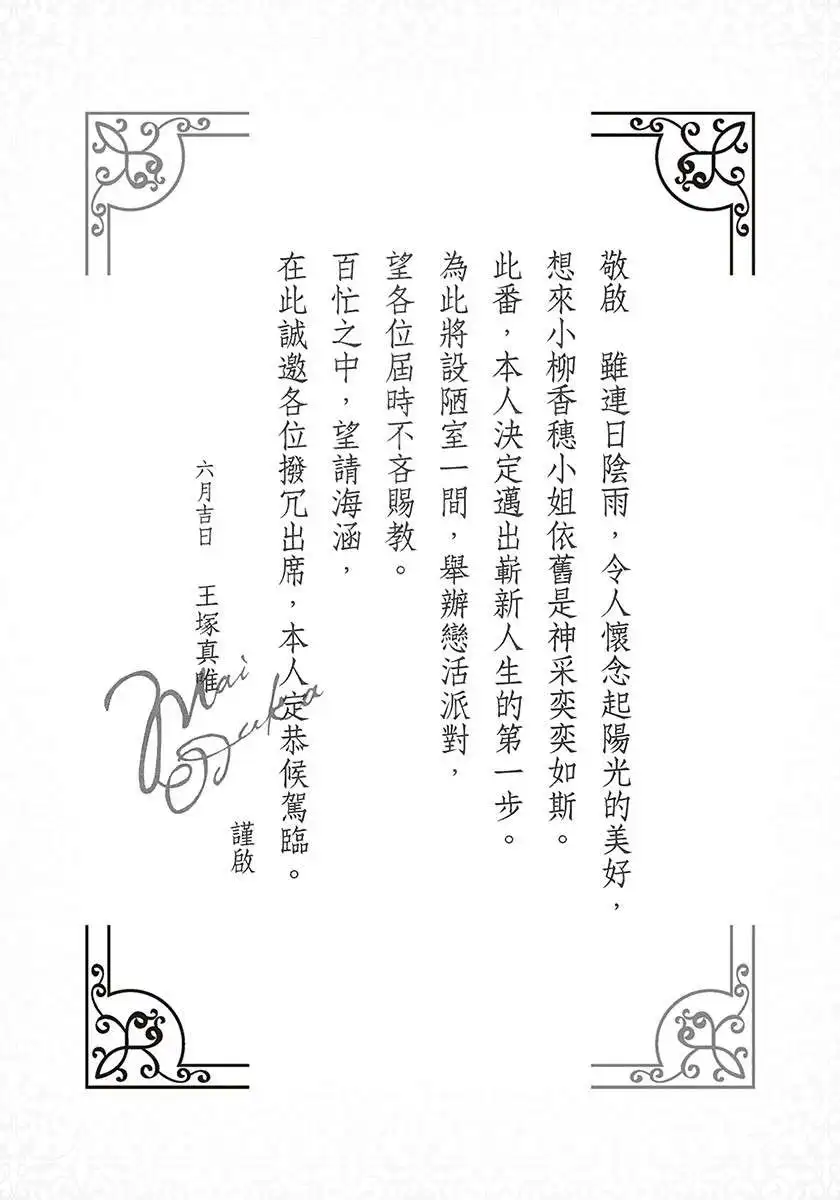 敬啟　雖連日陰雨，令人懷念起陽光的美好，
想來小柳香穗小姐依舊是神采奕奕如斯。
此番，本人決定邁出嶄新人生的第一步。
為此將設陋室一間，舉辦戀活派對，
望各位屆時不吝賜教。
百忙之中，望請海涵，
在此誠邀各位撥冗出席，本人定恭候駕臨。
謹啟
六月吉日　王塚真唯
Mai Oduka